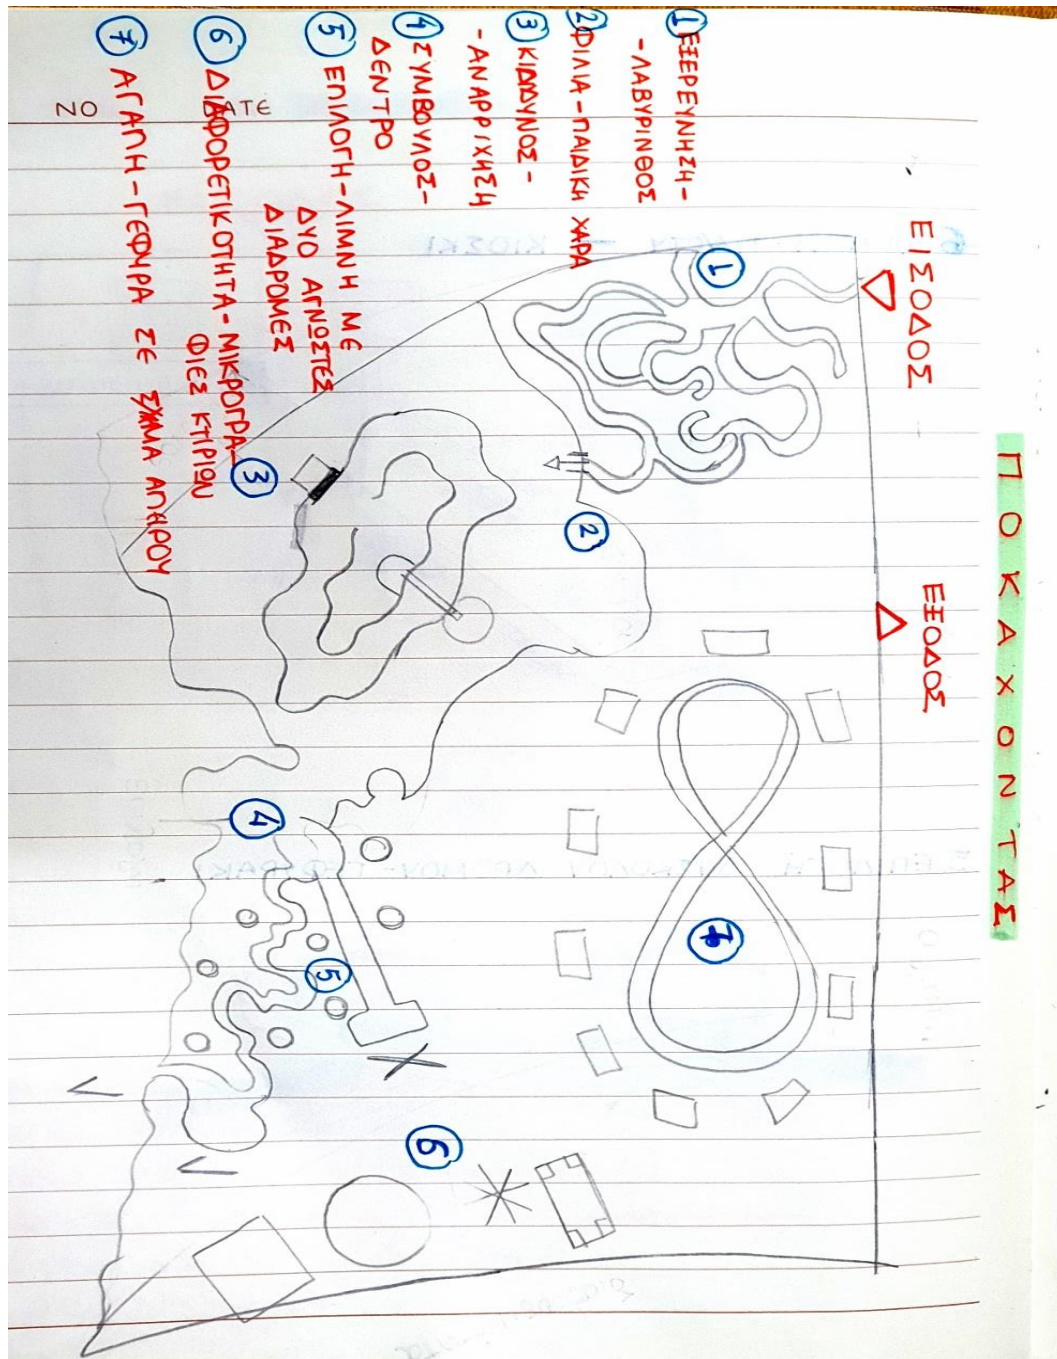 ΠΟΚΑΧΟΝΤΑΣ
ΕΙΣΟΔΟΣ
ΕΞΟΔΟΣ
① ΕΞΕΡΕΥΝΗΣΗ-
-ΛΑΒΥΡΙΝΘΟΣ
② ΦΙΛΙΑ-ΠΑΙΔΙΚΗ ΧΑΡΑ
③ ΚΙΔΔΥΝΟΣ-
-ΑΝΑΡΡΙΧΗΣΗ
④ ΣΥΜΒΟΥΛΟΣ-
ΔΕΝΤΡΟ
⑤ ΕΠΙΛΟΓΗ-ΛΙΜΝΗ ΜΕ
ΔΥΟ ΑΓΝΩΣΤΕΣ
ΔΙΑΔΡΟΜΕΣ
⑥ ΔΙΑΦΟΡΕΤΙΚΟΤΗΤΑ-ΜΙΚΡΟΓΡΑ-
ΦΙΕΣ ΚΤΙΡΙΩΝ
⑦ ΑΓΑΠΗ-ΓΕΦΥΡΑ ΣΕ ΣΧΜΑ ΑΠΗΡΟΥ
NO
DATE
1
2
3
4
5
6
7